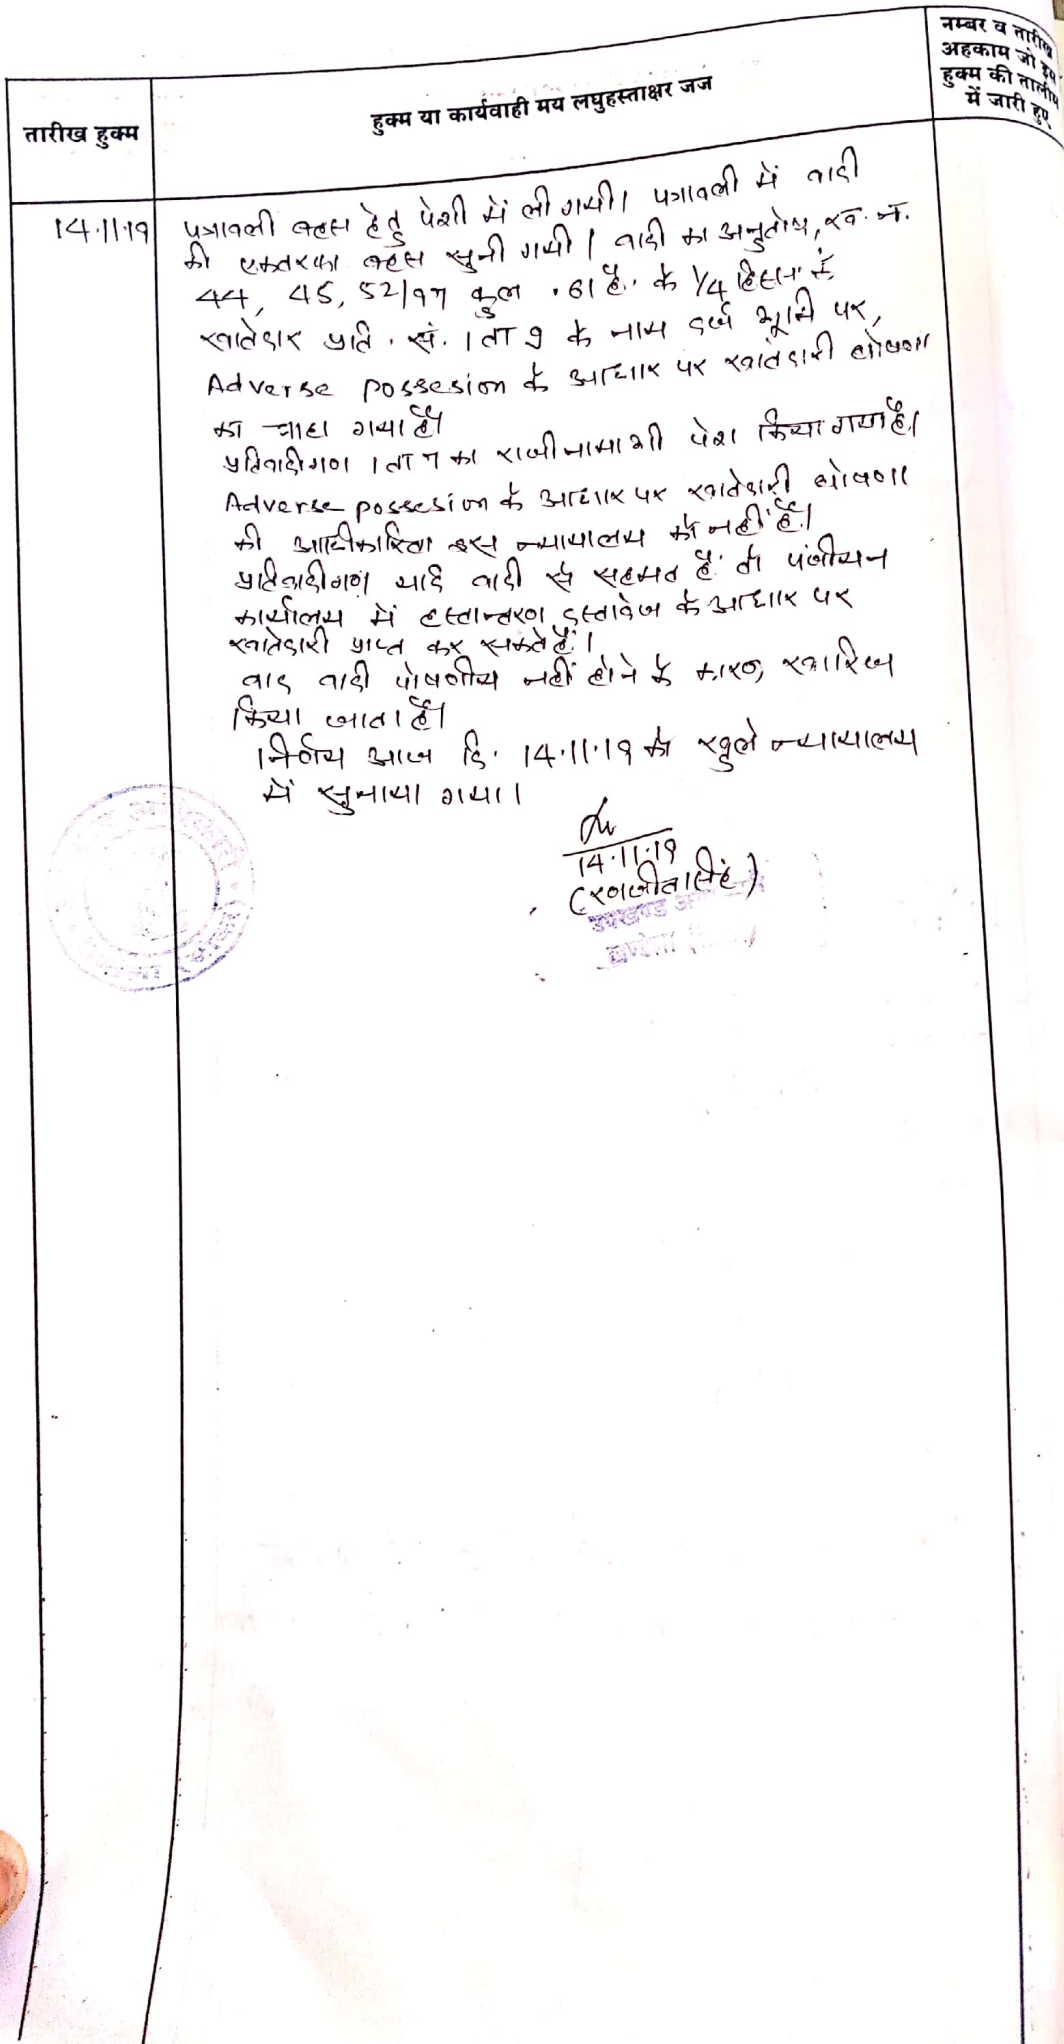 तारीख हुक्म
हुक्म या कार्यवाही मय लघुहस्ताक्षर जज
नम्बर व तारीख
अहकाम जो इस
हुक्म की तालीम
में जारी हुए
14.11.19
पत्रावली बहस हेतु पेशी में ली गयी। पत्रावली में वादी
की एकतरफा बहस सुनी गयी। वादी का अनुतोष, ख. न.
44, 45, 52/97 कुल .61 है. के 1/4 हिस्सा के
खातेदार प्रति. सं. 1 ता 9 के नाम दर्ज भूमि पर,
Adverse possesion के आधार पर खातेदारी घोषणा
का चाहा गया है।
प्रतिवादीगण 1 ता 7 का राजीनामा भी पेश किया गया है।
Adverse possesion के आधार पर खातेदारी घोषणा
की अधिकारिता इस न्यायालय को नहीं है।
प्रतिवादीगण यदि वादी से सहमत है तो पंजीयन
कार्यालय में हस्तान्तरण दस्तावेज के आधार पर
खातेदारी प्राप्त कर सकते हैं।
वाद वादी पोषणीय नहीं होने के कारण खारिज
किया जाता है।
निर्णय आज दि. 14.11.19 को खुले न्यायालय
में सुनाया गया।
14.11.19
(रणजीत सिंह)
उपखण्ड